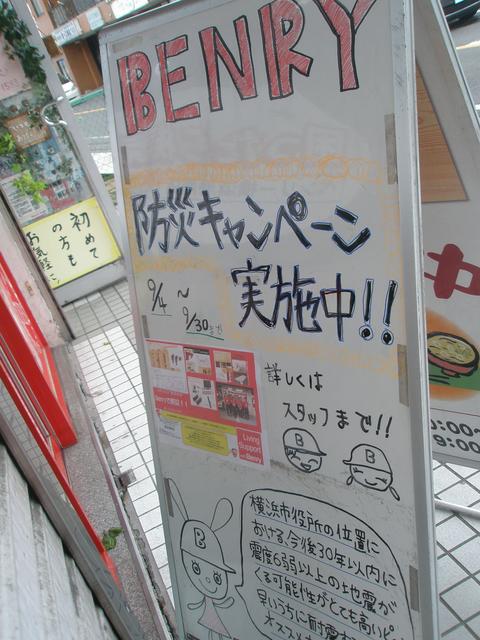 BENRY
防災キャンペーン
実施中!!
9/4 〜
9/30まで
詳しくは
スタッフまで!!
Living
Support
Benry
B
B
B
横浜市役所の位置に
おける、今後30年以内に
震度6弱以上の地震が
くる可能性がとても高いピ
早いうちに耐震
オススメ
初めて
の方も
お気軽に
カ
0:00~
9:00